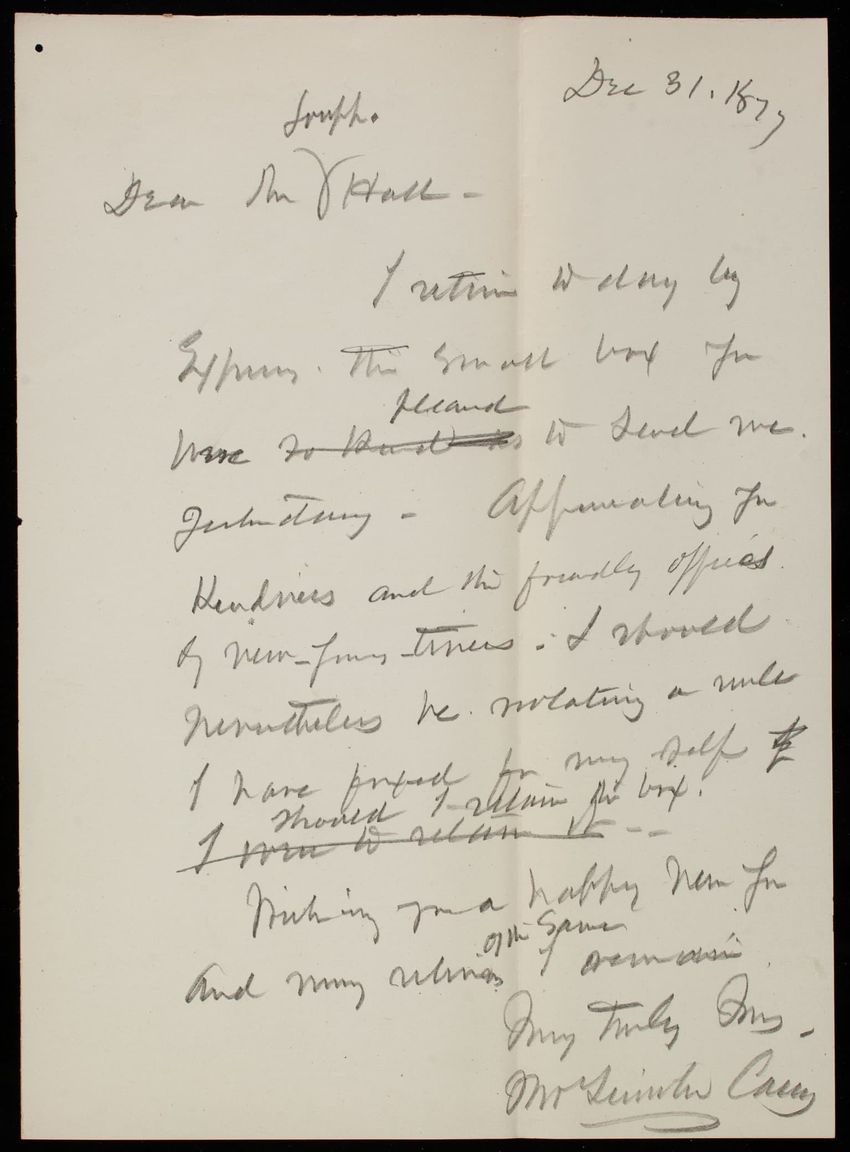 Dec 31. 1877
Joseph.
Dear Mr Hall -
I return to day by
Express. the small box you
pleased
were so kind as to send me.
Yesterday - Appreciating your
Kindness and the friendly offices
of New-Years times. I should
nevertheless be violating a rule
I have fixed for my self if
should I retain the box.
I were to retain it - -
Wishing you a happy New Year
of the Same
And many returns I remain
Very truly Yours -
Thos Lincoln Casey